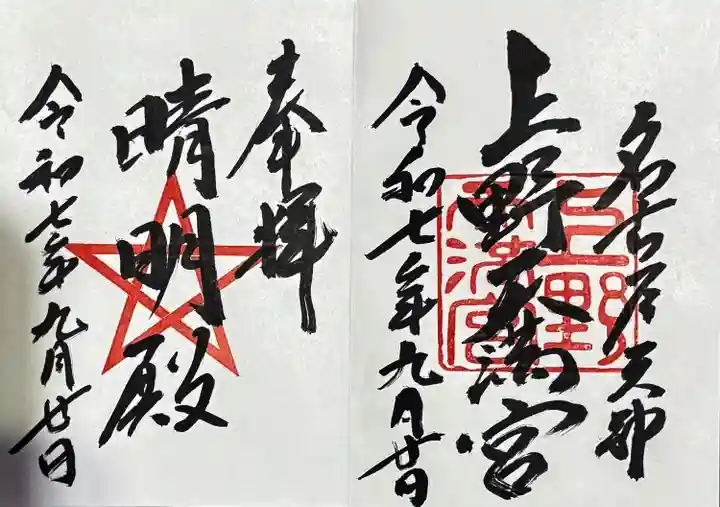 名古屋天神
上野天満宮
令和七年九月廿日
上野天満宮
奉拝
晴明殿
令和七年九月廿日